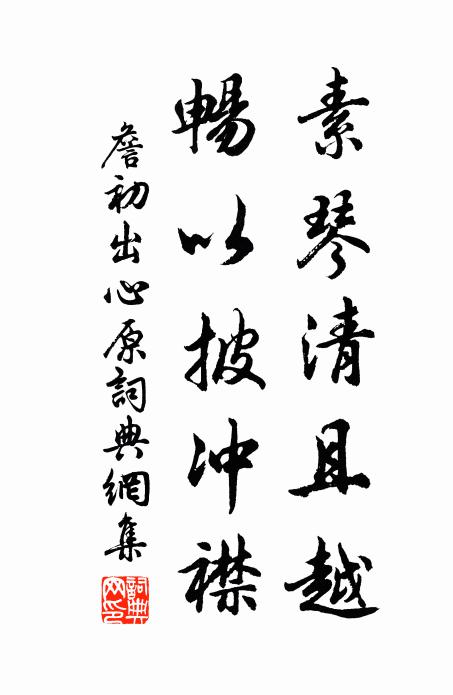 素琴清且越
暢以披冲襟
詹初出心原詞典網集
詞典